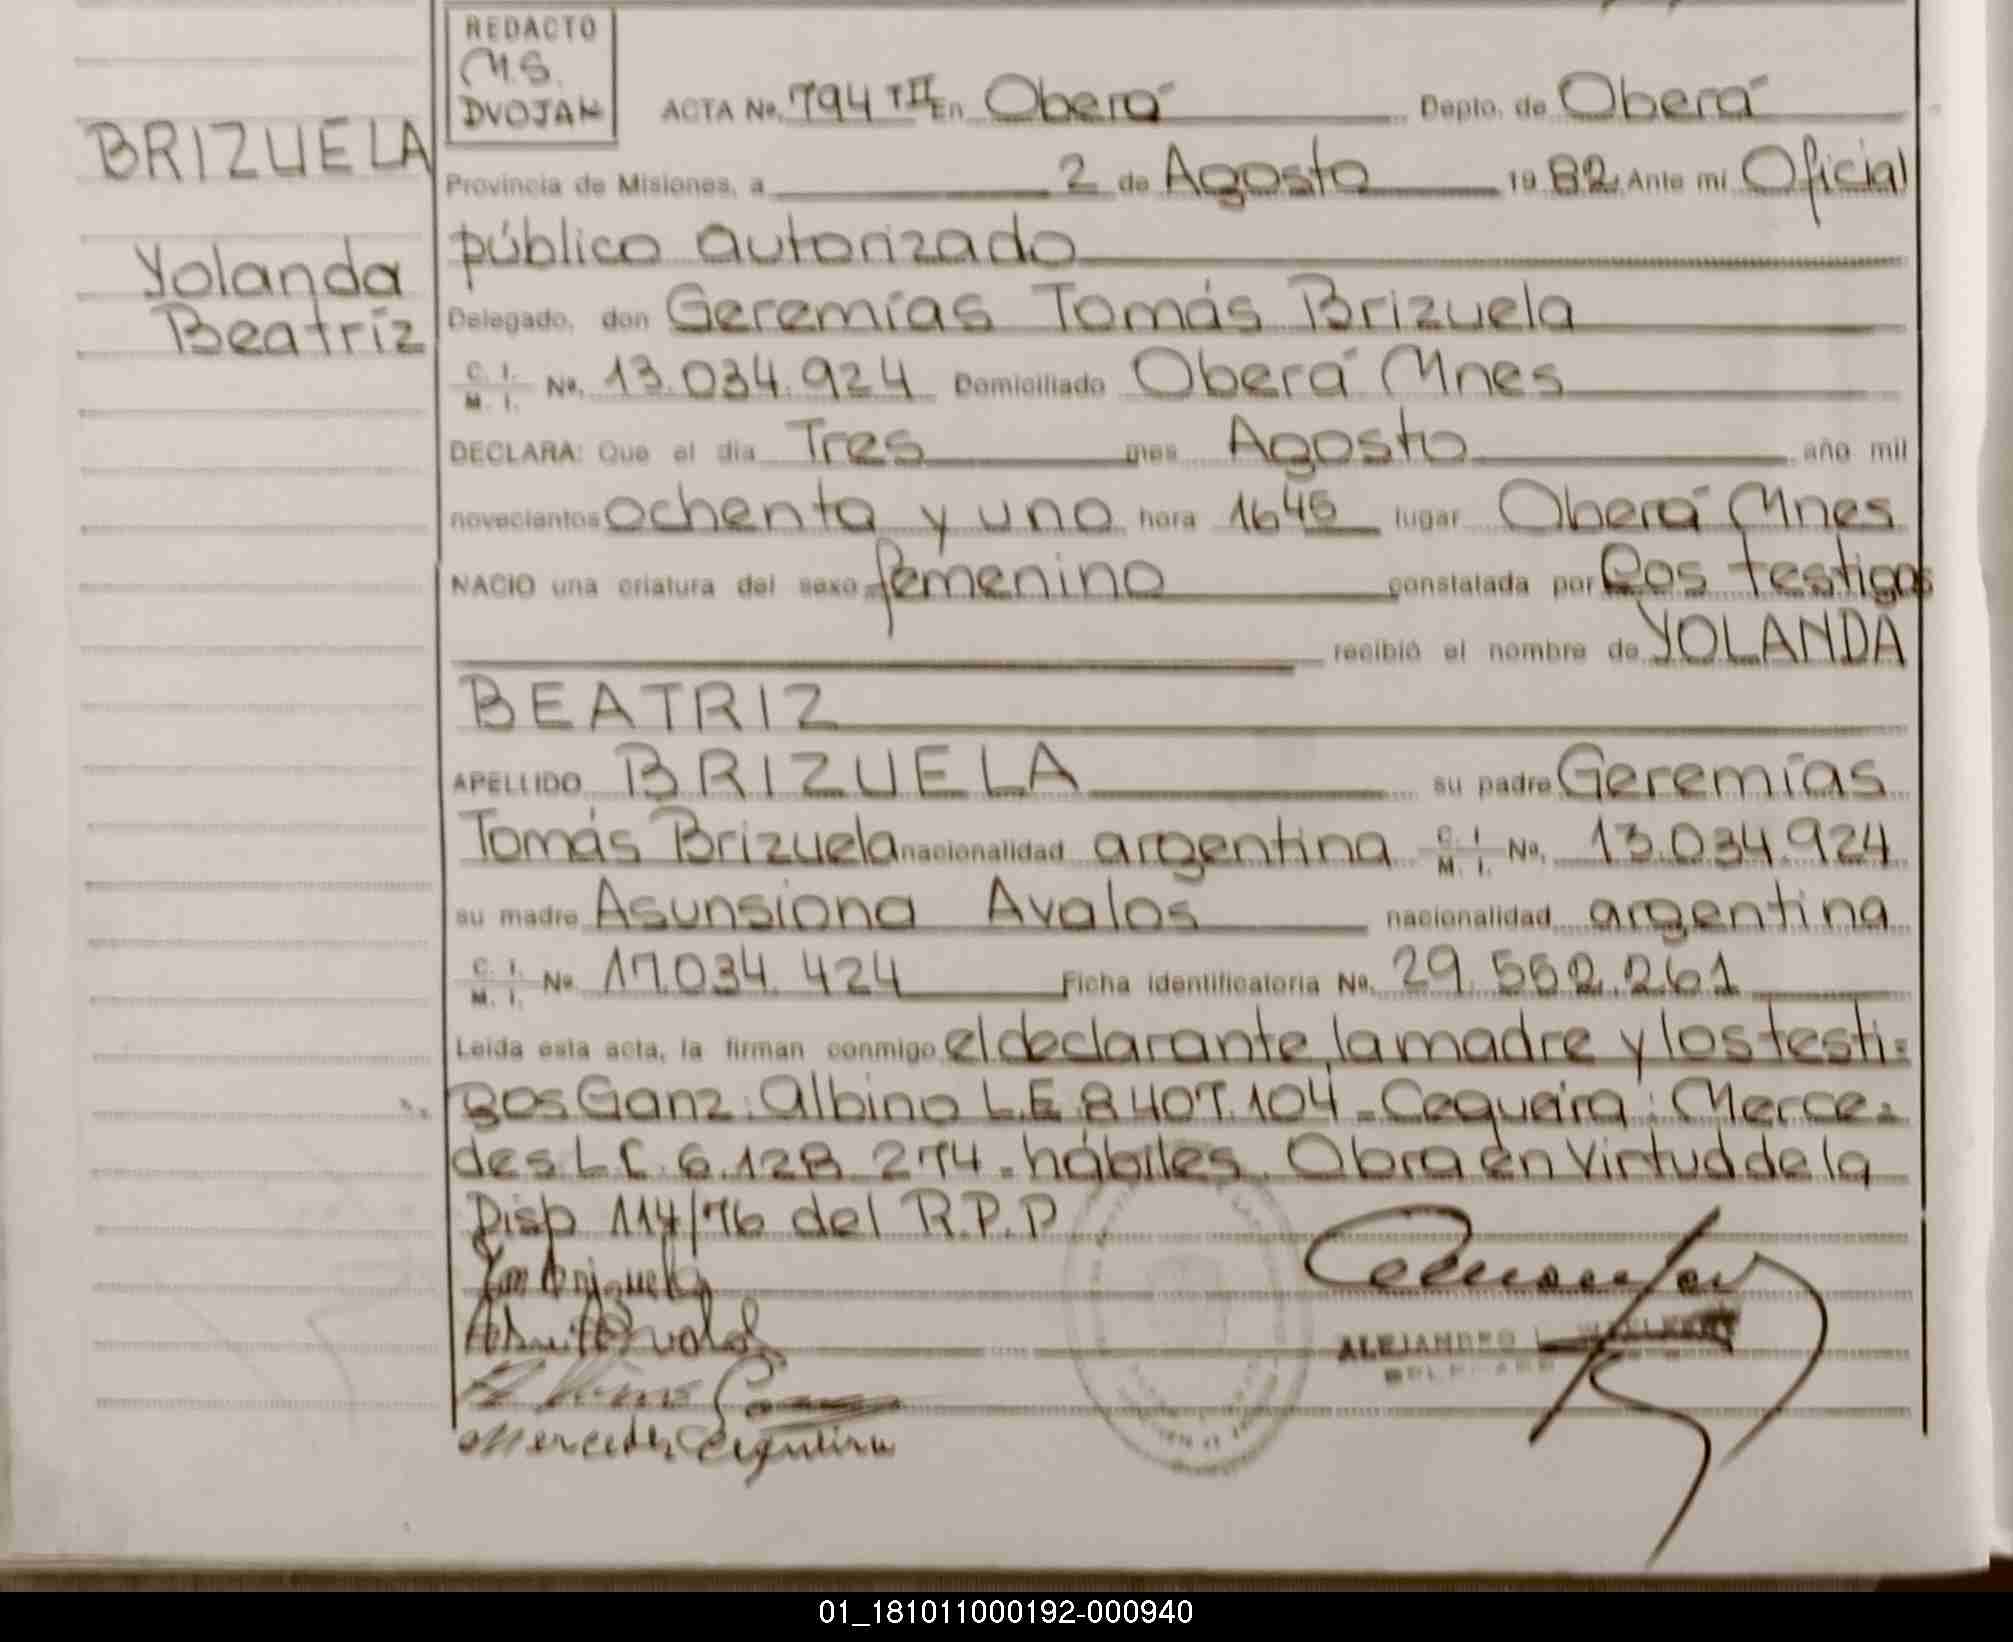 REDACTO
M.S.
DVOJAK
ACTA No. 794 TII En Oberá Depto. de Oberá
BRIZUELA
Provincia de Misiones, a 2 de Agosto 1982 Ante mi Oficial
público autorizado
Yolanda
Beatríz
Delegado, don Geremías Tomás Brizuela
C. I.
M. I. No. 13.034.924 Domiciliado Oberá Mnes
DECLARA: Que el dia Tres mes Agosto año mil
novecientos ochenta y uno hora 1645 lugar Oberá Mnes
NACIO una criatura del sexo femenino constatada por Dos testigos
recibió el nombre de YOLANDA
BEATRIZ
APELLIDO BRIZUELA su padre Geremías
Tomás Brizuela nacionalidad argentina C. I. M. I. No. 13.034.924
su madre Asunsiona Avalos nacionalidad argentina
C. I.
M. I. No 17.034.424 Ficha identificatoria No. 29.552.261
Leida esta acta, la firman conmigo el declarante, la madre y los testi=
gos Ganz: Albino L.E. 8.407.104 - Cequeira: Merce=
des L.C. 6.128.274 - hábiles. Obra en virtud de la
Disp 114/76 del R.P.P
Mercedes Cequeira
ALEJANDRO
01_181011000192-000940